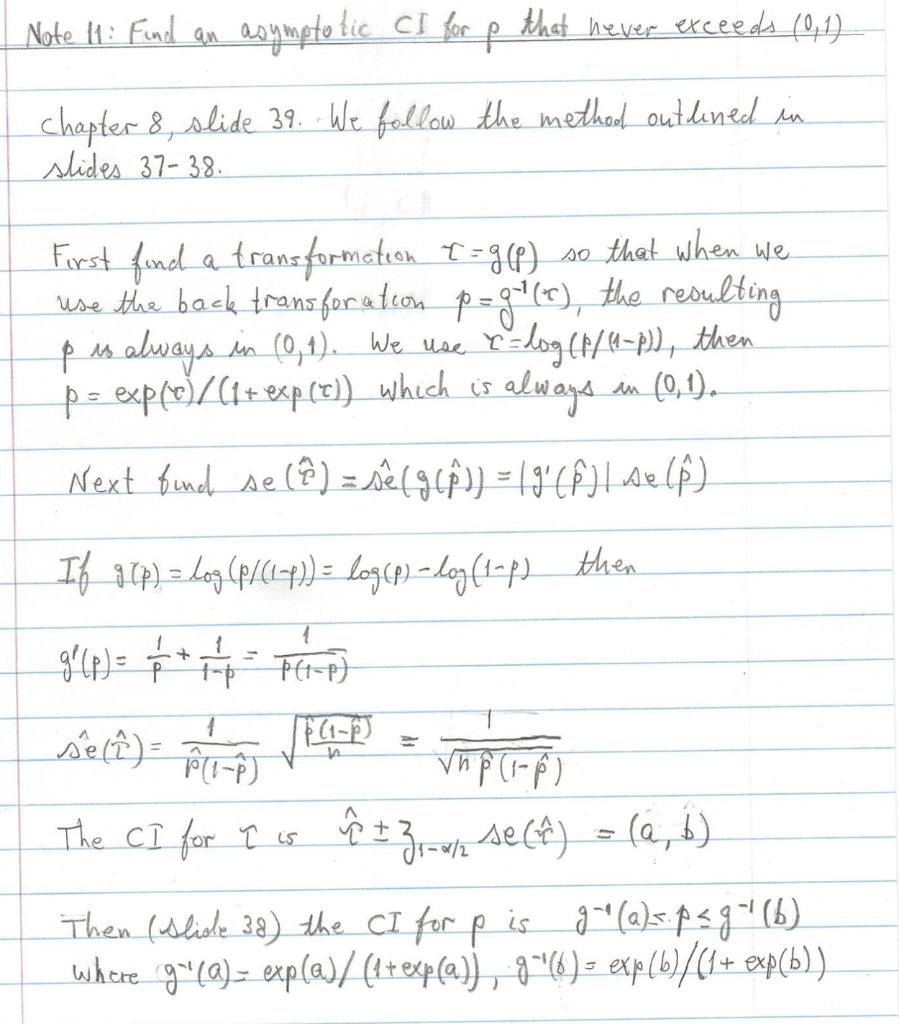 Note 11: Find an asymptotic CI for p that never exceeds (0,1)
Chapter 8, slide 39. We follow the method outlined in
slides 37-38.
First find a transformation τ = g(p) so that when we
use the back transforation p = g⁻¹(τ), the resulting
p is always in (0,1). We use τ = log(p/(1-p)), then
p = exp(τ)/(1+exp(τ)) which is always in (0,1).
Next find se(τ̂) = ŝe(g(p̂)) = |g'(p̂)| se(p̂)
If g(p) = log(p/(1-p)) = log(p) - log(1-p) then
g'(p) = 1/p + 1/(1-p) = 1/(p(1-p))
ŝe(τ̂) = 1/(p̂(1-p̂)) √(p̂(1-p̂)/n) = 1/√(n p̂(1-p̂))
The CI for τ is τ̂ ± z_{1-α/2} se(τ̂) = (a, b)
Then (slide 38) the CI for p is g⁻¹(a) ≤ p ≤ g⁻¹(b)
where g⁻¹(a) = exp(a)/(1+exp(a)), g⁻¹(b) = exp(b)/(1+exp(b))